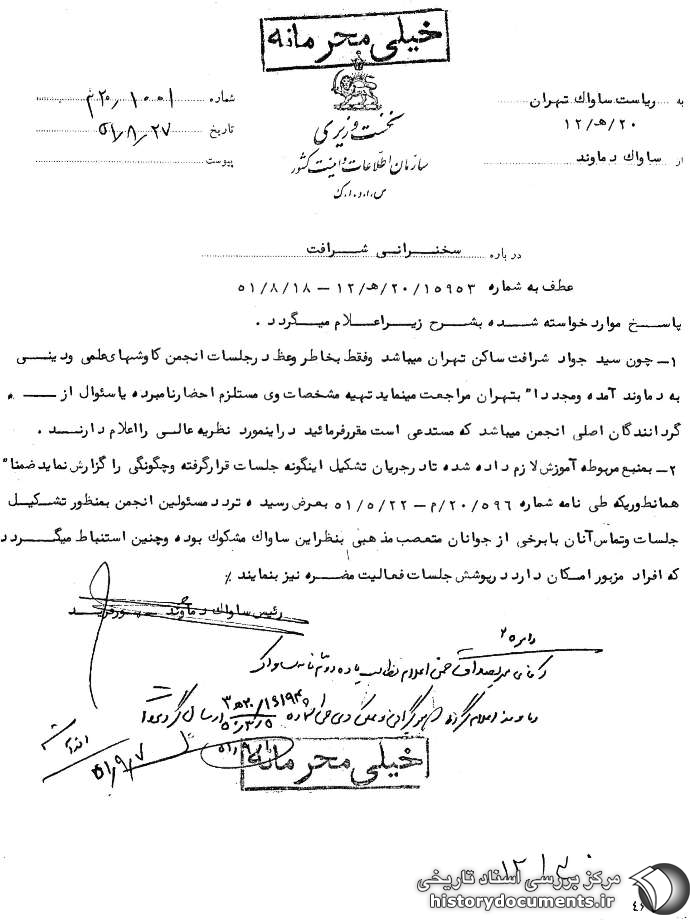 خیلی محرمانه
به ریاست ساواک تهران
۲۰/هـ۱۲
از ساواک دماوند
نخست وزیری
سازمان اطلاعات و امنیت کشور
س.ا.و.ا.ک
شماره ۱۰۰۱/۲۰م
تاریخ ۵۱/۸/۲۷
پیوست
درباره سخنرانی شرافت
عطف به شماره ۱۵۹۵۳/۲۰/هـ۱۲ – ۵۱/۸/۱۸
پاسخ موارد خواسته شده بشرح زیر اعلام میگردد .
۱– چون سید جواد شرافت ساکن تهران میباشد وفقط بخاطر وعظ در جلسات انجمن کاوشهای علمی ودینی
به دماوند آمده ومجدداً بتهران مراجعت مینماید تهیه مشخصات وی مستلزم احضار نامبرده یا سئوال از
گردانندگان اصلی انجمن میباشد که مستدعی است مقرر فرمائید در اینمورد نظریه عالی را اعلام دارند .
۲– بمنبع مربوطه آموزش لازم داده شده تا در جریان تشکیل اینگونه جلسات قرار گرفته وچگونگی را گزارش نماید ضمناً
همانطوریکه طی نامه شماره ۵۹۶/۲۰/م – ۵۱/۵/۲۲ بعرض رسیده تردد مسئولین انجمن بمنظور تشکیل
جلسات وتماس آنان با برخی از جوانان متعصب مذهبی بنظر این ساواک مشکوک بوده وچنین استنباط میگردد
که افراد مزبور امکان دارد در پوشش جلسات فعالیت مضره نیز بنمایند ٪
رئیس ساواک دماوند
دایره ۲
۵۱/۹/۷
خیلی محرمانه
مرکز بررسی اسناد تاریخی
historydocuments.ir